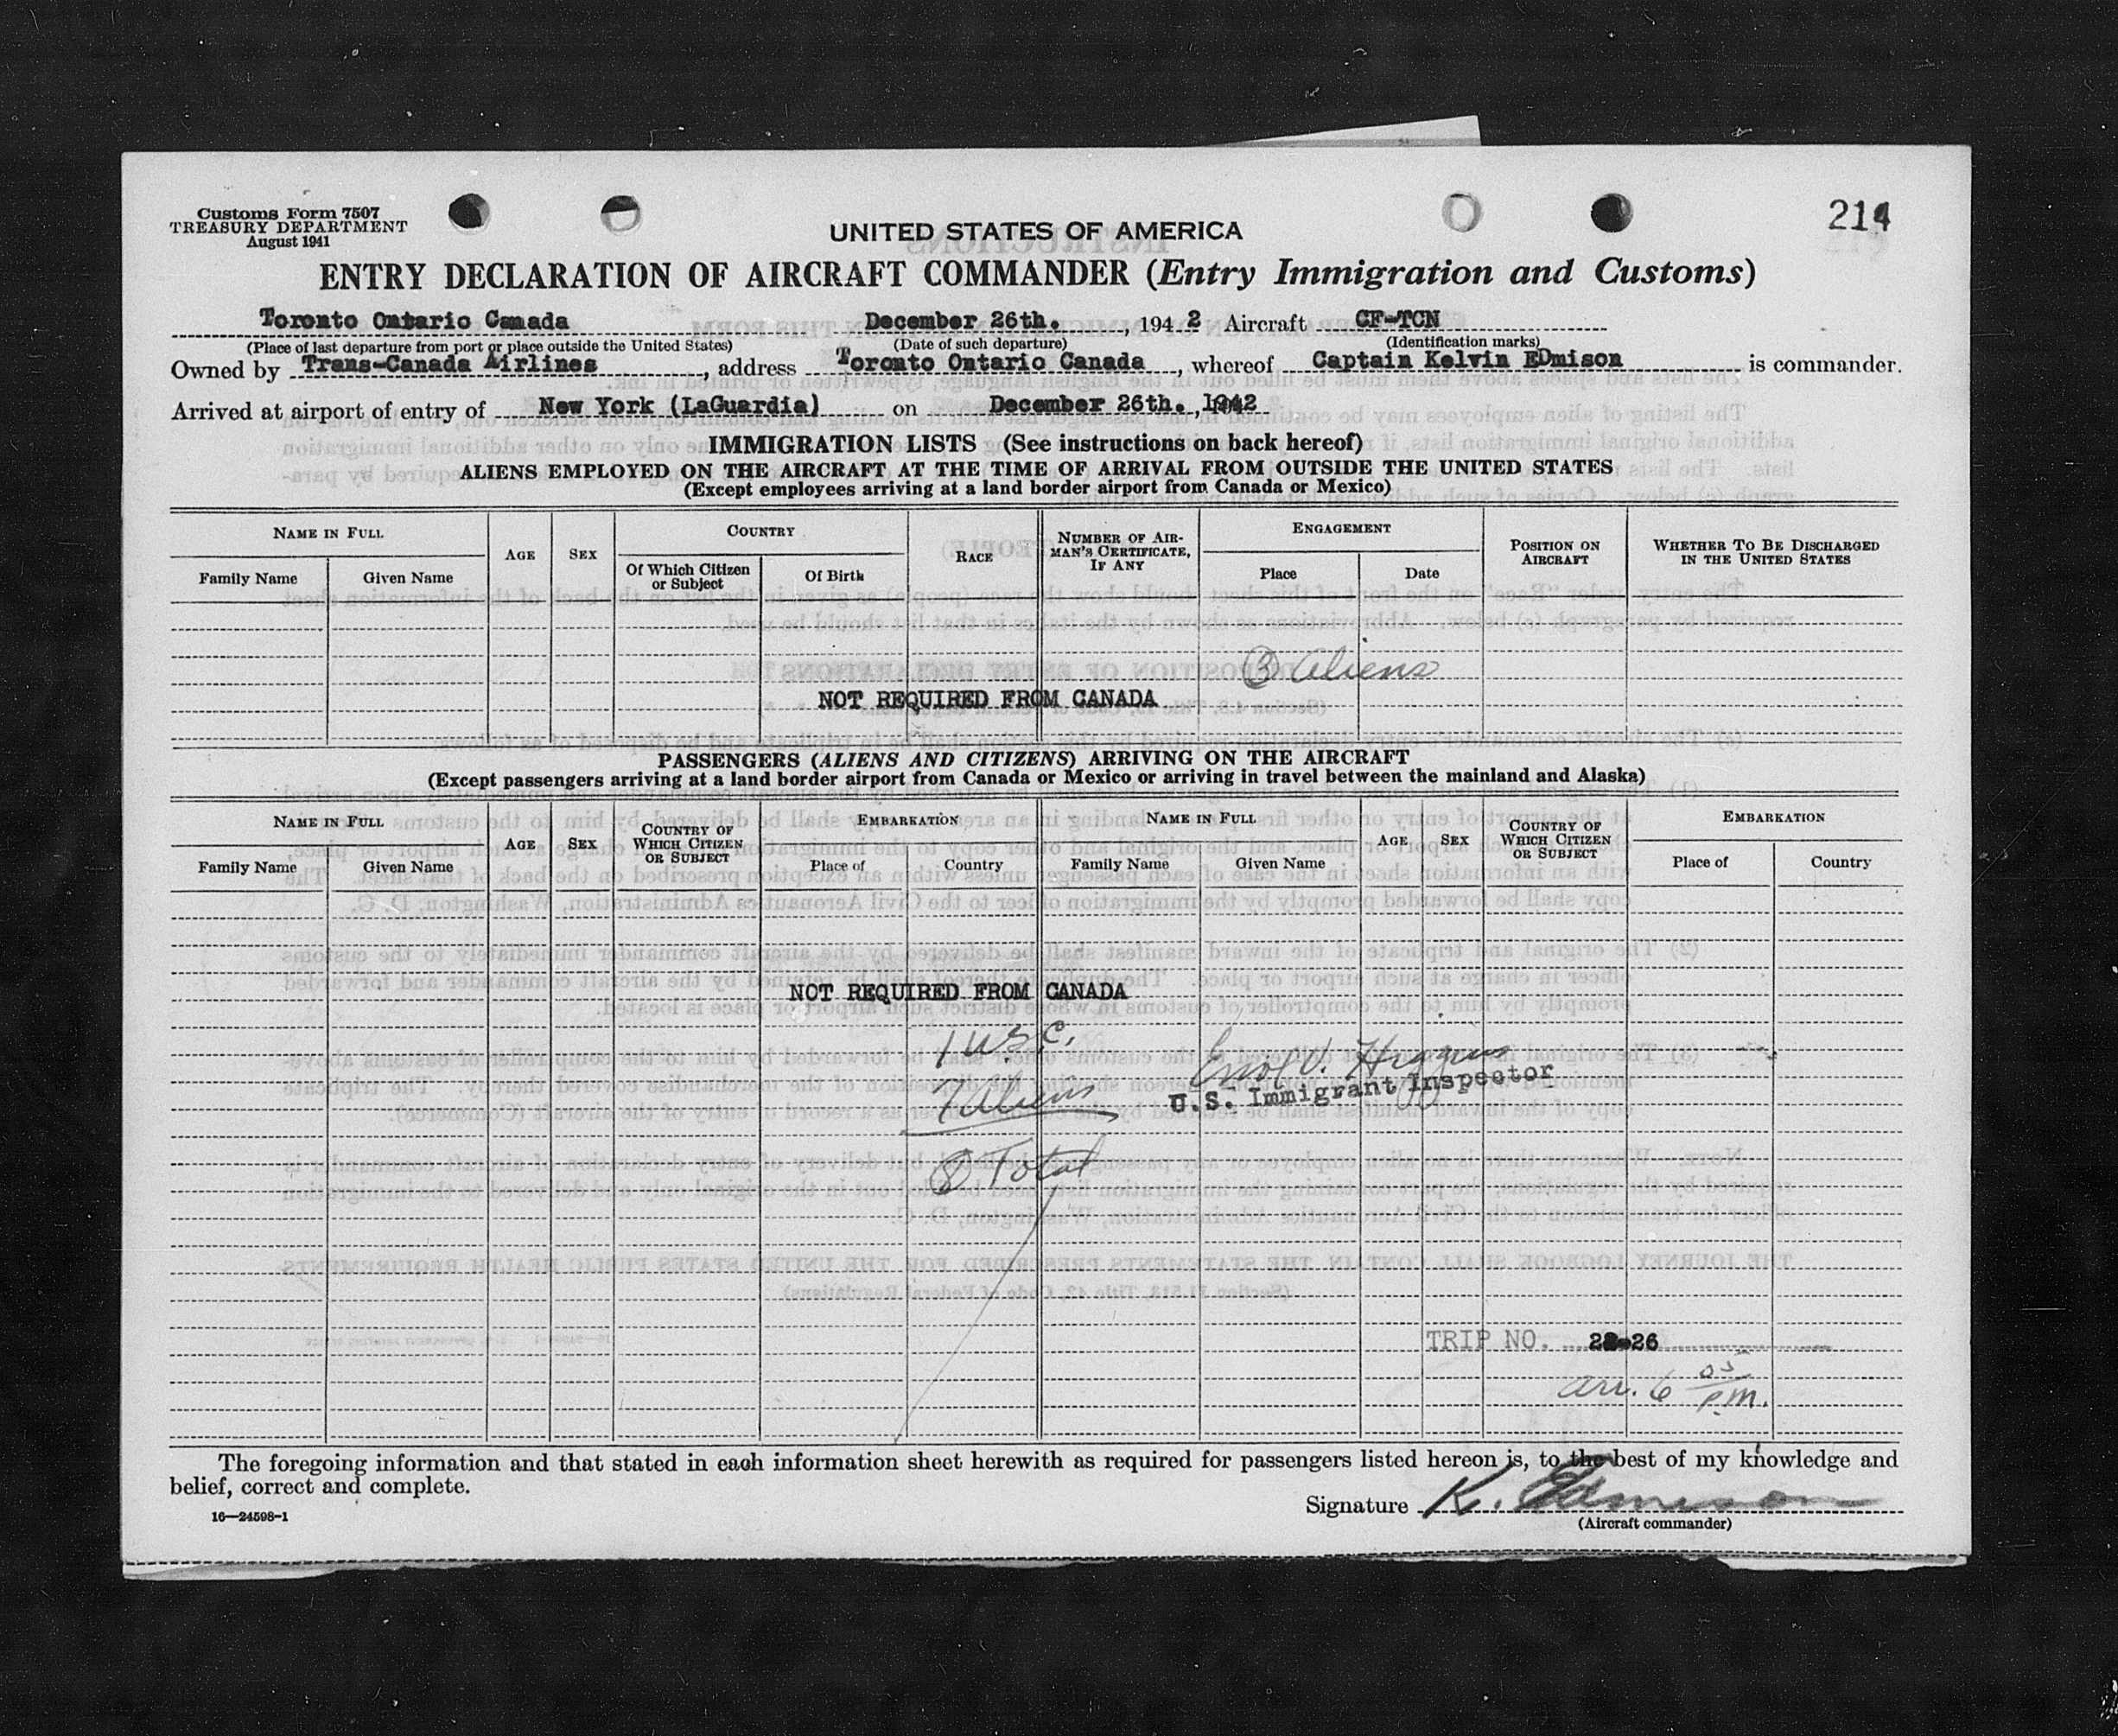 Customs Form 7507
TREASURY DEPARTMENT
August 1941
214
UNITED STATES OF AMERICA
ENTRY DECLARATION OF AIRCRAFT COMMANDER (Entry Immigration and Customs)
Toronto Ontario Canada December 26th. , 194 2 Aircraft CF-TCN
(Place of last departure from port or place outside the United States) (Date of such departure) (Identification marks)
Owned by Trans-Canada Airlines , address Toronto Ontario Canada , whereof Captain Kelvin EDmison is commander.
Arrived at airport of entry of New York (LaGuardia) on December 26th. ,1942
IMMIGRATION LISTS (See instructions on back hereof)
ALIENS EMPLOYED ON THE AIRCRAFT AT THE TIME OF ARRIVAL FROM OUTSIDE THE UNITED STATES
(Except employees arriving at a land border airport from Canada or Mexico)
NAME IN FULL AGE SEX COUNTRY RACE NUMBER OF AIRMAN'S CERTIFICATE, IF ANY ENGAGEMENT POSITION ON AIRCRAFT WHETHER TO BE DISCHARGED IN THE UNITED STATES
Family Name Given Name Of Which Citizen or Subject Of Birth Place Date
3 Aliens
NOT REQUIRED FROM CANADA
PASSENGERS (ALIENS AND CITIZENS) ARRIVING ON THE AIRCRAFT
(Except passengers arriving at a land border airport from Canada or Mexico or arriving in travel between the mainland and Alaska)
NAME IN FULL AGE SEX COUNTRY OF WHICH CITIZEN OR SUBJECT EMBARKATION NAME IN FULL AGE SEX COUNTRY OF WHICH CITIZEN OR SUBJECT EMBARKATION
Family Name Given Name Place of Country Family Name Given Name Place of Country
NOT REQUIRED FROM CANADA
1 USC.
7 Aliens
V. Higgins
U.S. Immigrant Inspector
8 Total
TRIP NO. 26
arr. 6 05 P.M.
The foregoing information and that stated in each information sheet herewith as required for passengers listed hereon is, to the best of my knowledge and
belief, correct and complete.
Signature K. Edmison
(Aircraft commander)
16—24598-1